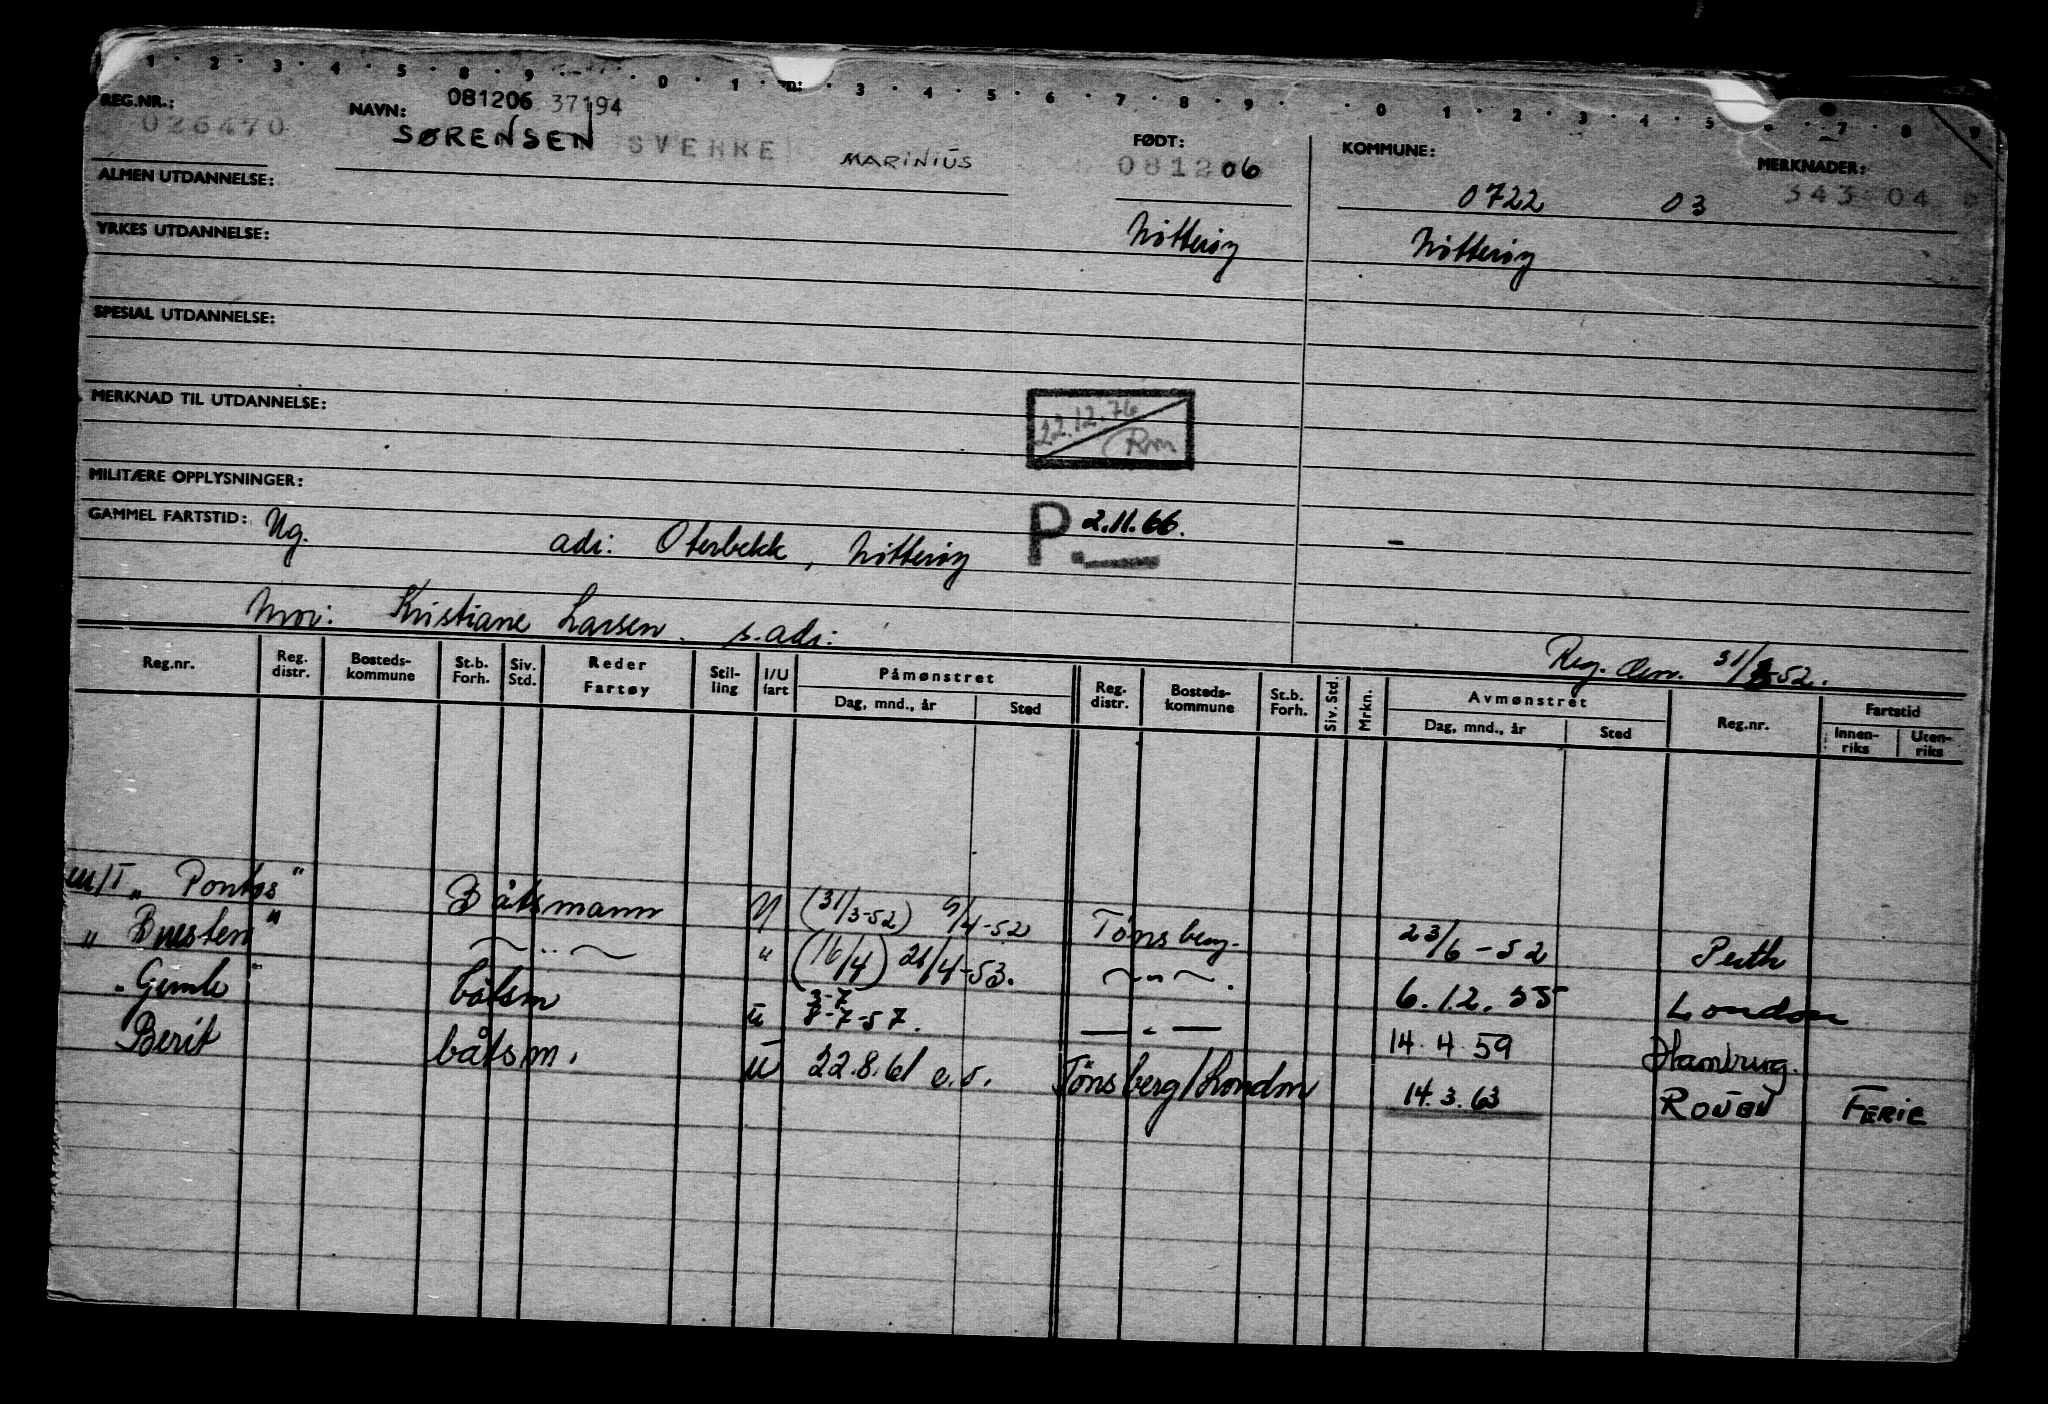 1 · 2 · 3 · 4 · 5 · 8 · 9 · 0 · 1 · m: · 3 · 4 · 5 · 6 · 7 · 8 · 9 · 0 · 1 · 2 · 3 · 4 · 5 · 7 · 8 · 9
REG.NR.: NAVN: 081206 37194 FØDT: KOMMUNE: MERKNADER:
026470 SØRENSEN SVERRE MARINIUS 081206 0722 03 343 04
ALMEN UTDANNELSE:
Nøtterøy Nøtterøy
YRKES UTDANNELSE:
SPESIAL UTDANNELSE:
MERKNAD TIL UTDANNELSE: 22.12.76
Rm
MILITÆRE OPPLYSNINGER:
GAMMEL FARTSTID: Ug. adr. Oterbekk, Nøtterøy P. 2.11.66.
Mor: Kristiane Larsen. s. adr.
Reg. den. 31/3-52.
Reg.nr. Reg. distr. Bosteds-kommune St.b. Forh. Siv. Std. Reder Fartøy Stil-ling I/U fart Påmønstret Dag, mnd., år Sted Reg. distr. Bosteds-kommune St.b. Forh. Siv. Std. Mrkn. Avmønstret Dag, mnd., år Sted Reg.nr. Fartstid Innen-riks Uten-riks
m/T „Pontos" Båtsmann U (31/3-52) 9/4-52 Tönsberg. 23/6-52 Perth
„ Buesten" — „ — " (16/4) 21/4-53. — „ —. 6.12.55 London
„Gimle" båtsm u 3-7 8-7-57. — „ — 14.4.59 Hamburg.
Berit båtsm. u 22.8.61 e.o. Tönsberg/London 14.3.63 ROUEN FERIE